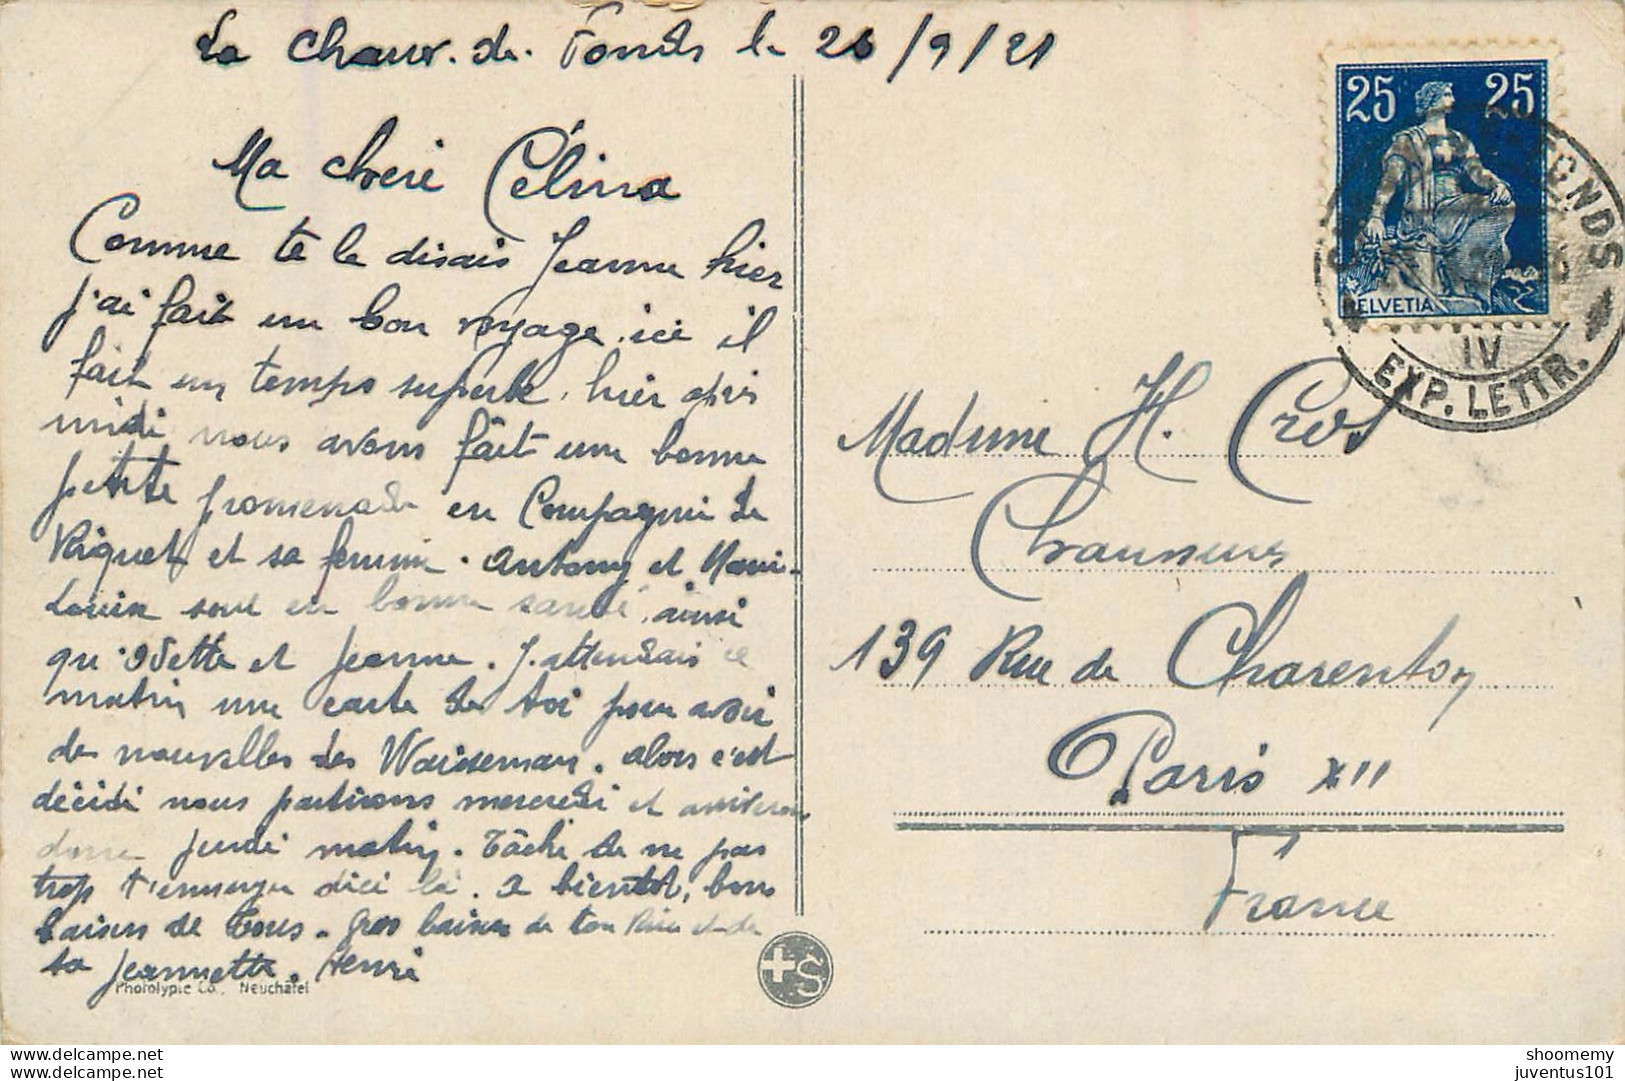 La Chaux-de-Fonds le 26/9/21
Ma cheri Célina
Comme te le disais Jeanne hier
j'ai fait un bon voyage. ici il
fait un temps superbe. hier après
midi nous avons fait une bonne
petite promenade en Compagnie de
Riquet et sa femme. Antony et Marie-
Louise sont en bonne santé, ainsi
qu'Odette et Jeanne. J'attendais ce
matin une carte de toi pour avoir
de nouvelles des. alors c'est
décidé nous partirons mercredi et arriverons
donc jeudi matin. Tâche de ne pas
trop t'ennuyer d'ici là. a bientôt, bons
baisers de Tous. gros baisers de ton et de
sa Jeannette. Henri
Phototypie Co., Neuchâtel
S
25 25
HELVETIA
FONDS
IV
EXP. LETTR.
Madame H. Cros
Chaussures
139 Rue de Charenton
Paris XII
France
delcampe.net
juventus101.delcampe.net
shoomemy
juventus101